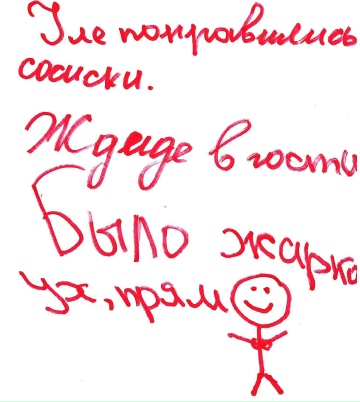 Уле понравились
сосиски.
Ждиде в гости
Было жарко
ух, прям